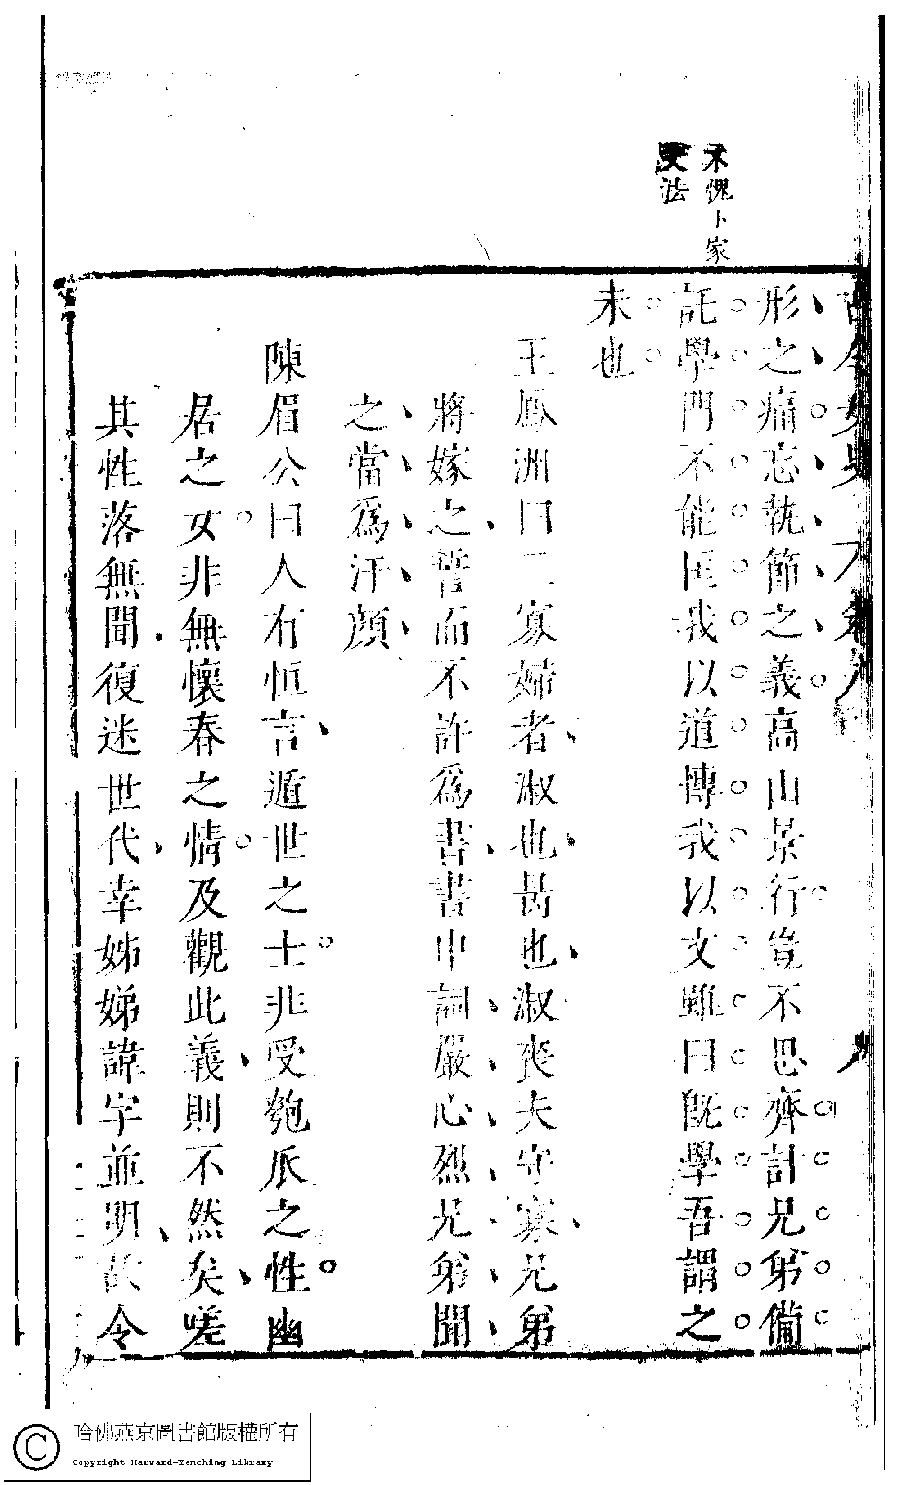 不愧卜家
文法
古今女史
形之痛忘執節之義高山景行豈不思齊計兄弟備
託學門不能匡我以道博我以文雖曰旣學吾謂之
未也
王鳳洲曰二寡婦者淑也昺也淑喪夫守寡兄弟
將嫁之誓而不許爲書書中詞嚴心烈兄弟聞
之當爲汗顏
陳眉公曰人有恒言遁世之士非受匏瓜之性幽
居之女非無懷春之情及觀此義則不然矣嗟
其性落無聞復迷世代幸姊娣諱字並明故令
哈佛燕京圖書館版權所有
Copyright Harvard-Yenching Library